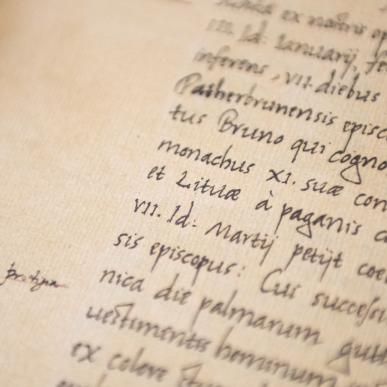 ex nostris
III. Id. Ianuarij,
inferens, VII. diebus
Patherbrunensis episc
tus Bruno qui cogno
monachus XI. suæ con
et Lituæ à paganis
VII. Id: Martij petijt coe
sis episcopus: Cui succes
nica die palmarum
uestimentis hominum
ex colore